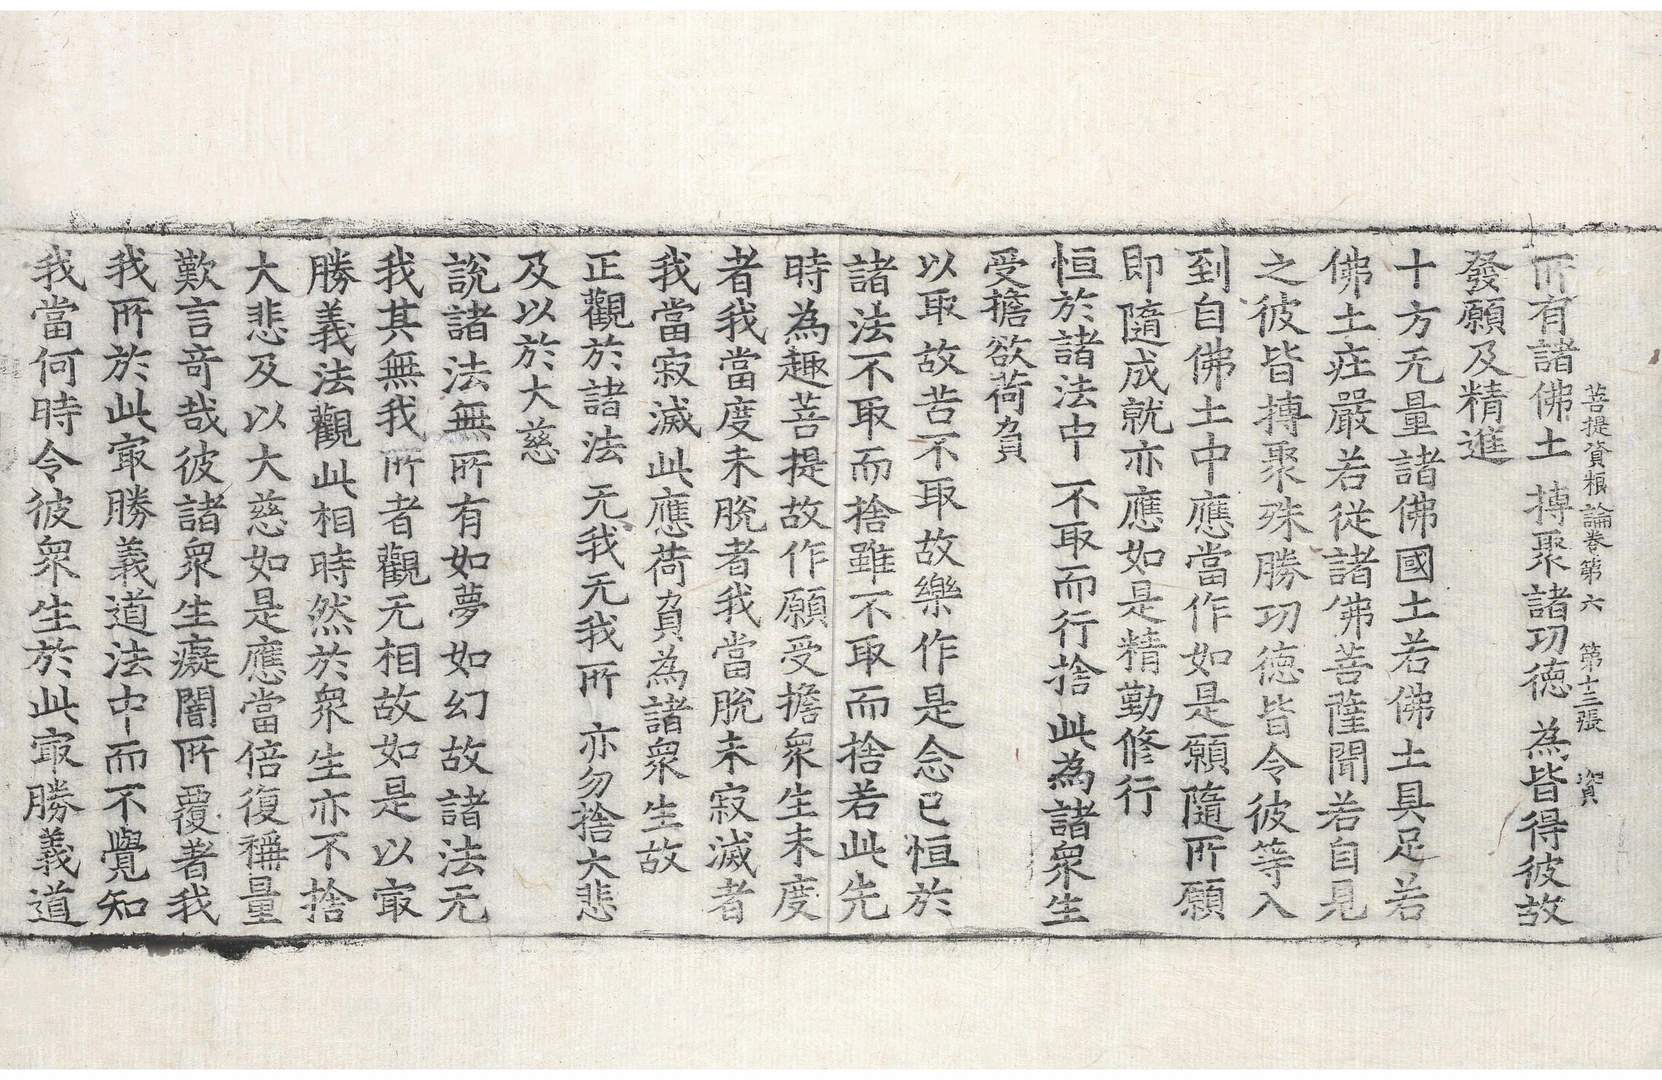 菩提資粮論卷第六　第十三張　資
所有諸佛土　摶聚諸功徳　為皆得彼故
發願及精進
十方无量諸佛國土若佛土具足若
佛土庄嚴若從諸佛菩薩聞若自見
之彼皆摶聚殊勝功徳皆令彼等入
到自佛土中應當作如是願隨所願
即隨成就亦應如是精勤修行
恒於諸法中　不取而行捨　此為諸衆生
受擔欲荷負
以取故苦不取故樂作是念已恒於
諸法不取而捨雖不取而捨若此先
時為趣菩提故作願受擔衆生未度
者我當度未脫者我當脫未寂滅者
我當寂滅此應荷負為諸衆生故
正觀於諸法　无我无我所　亦勿捨大悲
及以於大慈
說諸法無所有如夢如幻故諸法无
我其無我所者觀无相故如是以㝡
勝義法觀此相時然於衆生亦不捨
大悲及以大慈如是應當倍復稱量
歎言奇哉彼諸衆生癡闇所覆著我
我所於此㝡勝義道法中而不覺知
我當何時令彼衆生於此㝡勝義道